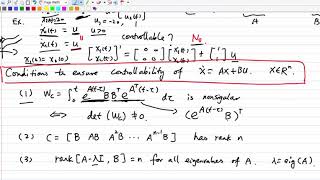 Ex. ẋ₁(t) = u
ẋ₂(t) = u
controllable? No
x₁(0) = x₂(0) [x₁(t) x₂(t)]' = [0 0 0 0] [x₁(t) x₂(t)] + [1 1] u
A B
Conditions to ensure controllability of ẋ = AX+BU. X∈Rⁿ.
(1) W_c = ∫₀ᵗ e^{A(t-τ)} B B^T e^{A^T(t-τ)} dτ is nonsingular
⟺ det(W_c) ≠ 0. (e^{A(t-τ)} B)^T
(2) C = [B AB A²B ... A^{n-1}B] has rank n
(3) rank[A-λI, B] = n for all eigenvalues of A. λ = eig(A).